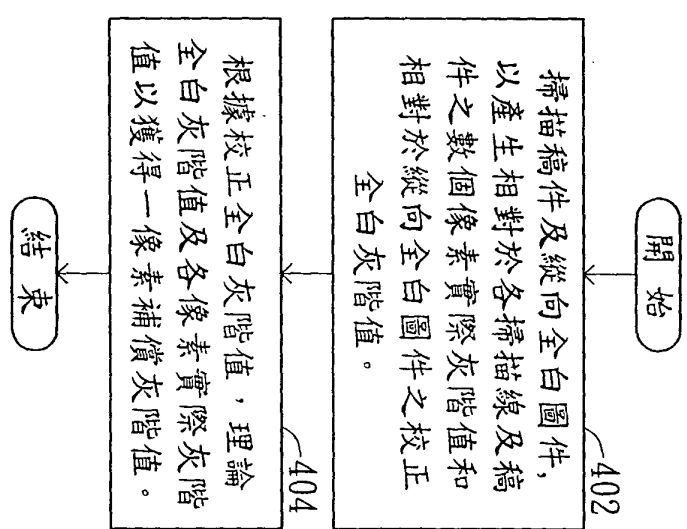 開始
402
掃描稿件及縱向全白圖件，
以產生相對於各掃描線及稿
件之數個像素實際灰階值和
相對於縱向全白圖件之校正
全白灰階值。
404
根據校正全白灰階值，理論
全白灰階值及各像素實際灰階
值以獲得一像素補償灰階值。
結束